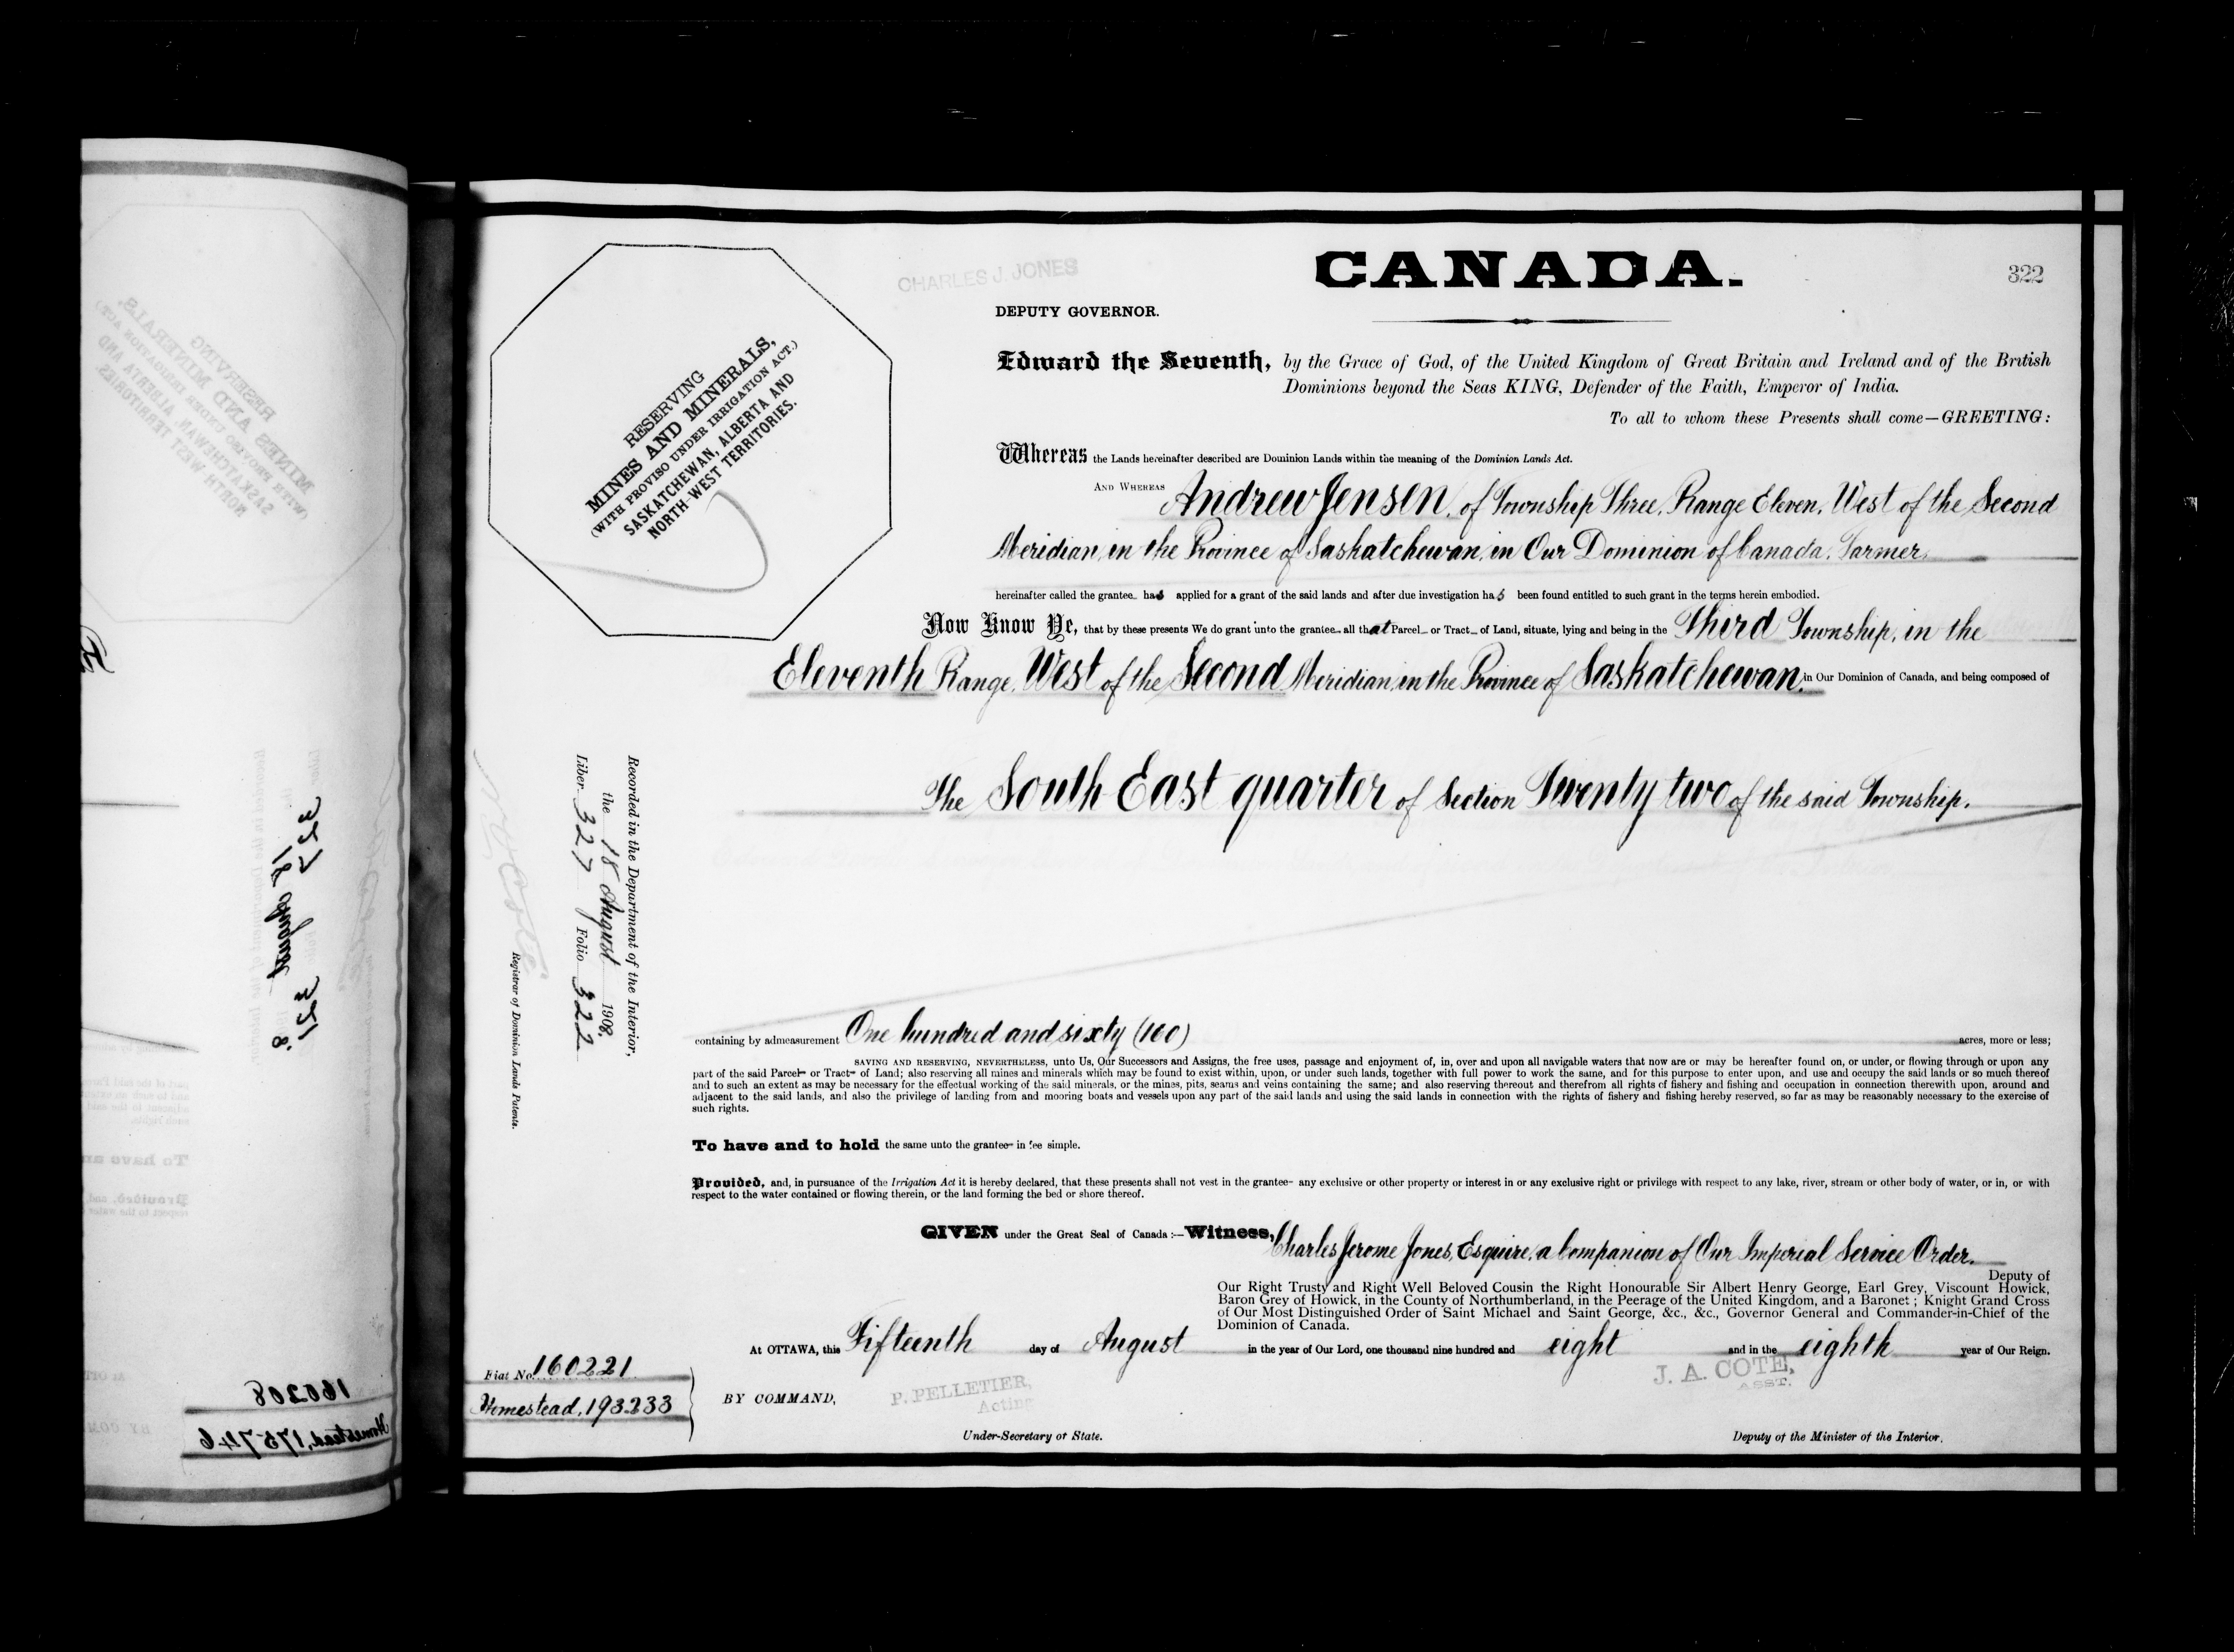 CHARLES J. JONES
CANADA.
322
DEPUTY GOVERNOR.
RESERVING
MINES AND MINERALS,
(WITH PROVISO UNDER IRRIGATION ACT.)
SASKATCHEWAN, ALBERTA AND
NORTH-WEST TERRITORIES.
Edward the Seventh, by the Grace of God, of the United Kingdom of Great Britain and Ireland and of the British
Dominions beyond the Seas KING, Defender of the Faith, Emperor of India.
To all to whom these Presents shall come—GREETING:
Whereas the Lands hereinafter described are Dominion Lands within the meaning of the Dominion Lands Act.
AND WHEREAS Andrew Jensen, of Township Three, Range Eleven, West of the Second
Meridian, in the Province of Saskatchewan, in Our Dominion of Canada, Farmer,
hereinafter called the grantee has applied for a grant of the said lands and after due investigation has been found entitled to such grant in the terms herein embodied.
Now Know Ye, that by these presents We do grant unto the grantee all that Parcel or Tract of Land, situate, lying and being in the Third Township, in the
Eleventh Range, West of the Second Meridian, in the Province of Saskatchewan, in Our Dominion of Canada, and being composed of
The South East quarter of Section Twenty two of the said Township.
Recorded in the Department of the Interior,
the 18 August 1908,
Liber 327 Folio 322
N.O. Coté
Registrar of Dominion Lands Patents.
containing by admeasurement One hundred and sixty (160) acres, more or less;
SAVING AND RESERVING, NEVERTHELESS, unto Us, Our Successors and Assigns, the free uses, passage and enjoyment of, in, over and upon all navigable waters that now are or may be hereafter found on, or under, or flowing through or upon any
part of the said Parcel or Tract of Land; also reserving all mines and minerals which may be found to exist within, upon, or under such lands, together with full power to work the same, and for this purpose to enter upon, and use and occupy the said lands or so much thereof
and to such an extent as may be necessary for the effectual working of the said minerals, or the mines, pits, seams and veins containing the same; and also reserving thereout and therefrom all rights of fishery and fishing and occupation in connection therewith upon, around and
adjacent to the said lands, and also the privilege of landing from and mooring boats and vessels upon any part of the said lands and using the said lands in connection with the rights of fishery and fishing hereby reserved, so far as may be reasonably necessary to the exercise of
such rights.
To have and to hold the same unto the grantee in fee simple.
Provided, and, in pursuance of the Irrigation Act it is hereby declared, that these presents shall not vest in the grantee any exclusive or other property or interest in or any exclusive right or privilege with respect to any lake, river, stream or other body of water, or in, or with
respect to the water contained or flowing therein, or the land forming the bed or shore thereof.
GIVEN under the Great Seal of Canada:—Witness, Charles Jerome Jones, Esquire, a Companion of Our Imperial Service Order.
Deputy of
Our Right Trusty and Right Well Beloved Cousin the Right Honourable Sir Albert Henry George, Earl Grey, Viscount Howick,
Baron Grey of Howick, in the County of Northumberland, in the Peerage of the United Kingdom, and a Baronet; Knight Grand Cross
of Our Most Distinguished Order of Saint Michael and Saint George, &c., &c., Governor General and Commander-in-Chief of the
Dominion of Canada.
At OTTAWA, this Fifteenth day of August in the year of Our Lord, one thousand nine hundred and eight and in the eighth year of Our Reign.
Fiat No. 160221
Homestead, 193233
BY COMMAND,
P. PELLETIER,
Acting
Under-Secretary of State.
J. A. COTE,
ASST.
Deputy of the Minister of the Interior.